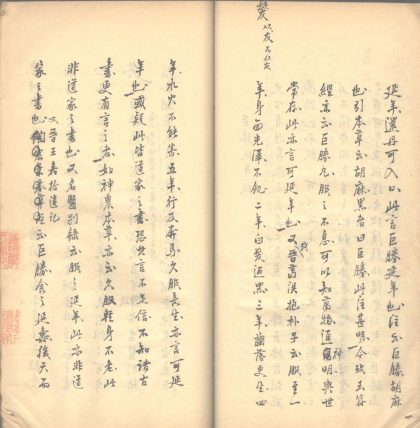 髮从友不从犮
延年還丹可入口此言巨勝延年也注云巨勝胡麻
也引本草云胡麻黑者曰巨勝此注甚明今攷五符
經亦云巨勝丸服之不息可以知萬物通神明與世
常存此亦言可延年也又晉葛洪抱朴子云服至一
年身面光澤不飢二年白髮返黑三年齒落更生四
年水火不能害五年行及奔馬久服長生亦言可延
年也或疑此皆道家之書恐其言不足信不知諸古
書更有言之者如神農本草亦云久服輕身不老此
非道家之書也又名醫別錄云服之延年此亦非道
家之書也又晉王嘉拾遺記云巨勝食之延壽後天而